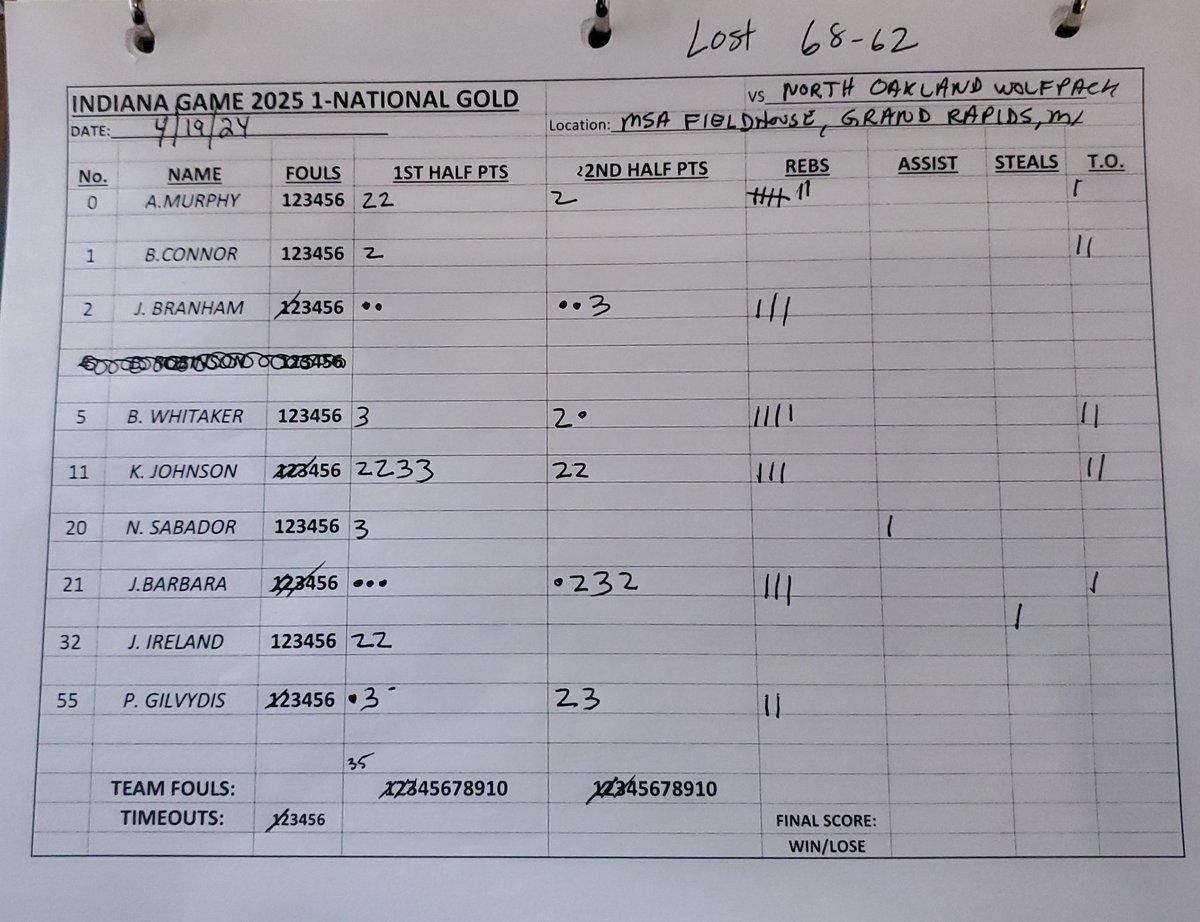 Lost 68-62
INDIANA GAME 2025 1-NATIONAL GOLD VS NORTH OAKLAND WOLFPACK
DATE: 4/19/24 Location: MSA FIELDHOUSE, GRAND RAPIDS, MI
No. NAME FOULS 1ST HALF PTS 22ND HALF PTS REBS ASSIST STEALS T.O.
0 A.MURPHY 123456 22 2
1 B.CONNOR 123456 2
2 J. BRANHAM 123456 •• ••3
123456
5 B. WHITAKER 123456 3 2•
11 K. JOHNSON 123456 2233 22
20 N. SABADOR 123456 3
21 J.BARBARA 123456 ••• •232
32 J. IRELAND 123456 22
55 P. GILVYDIS 123456 •3 23
35
TEAM FOULS: 12345678910 12345678910
TIMEOUTS: 123456 FINAL SCORE:
WIN/LOSE